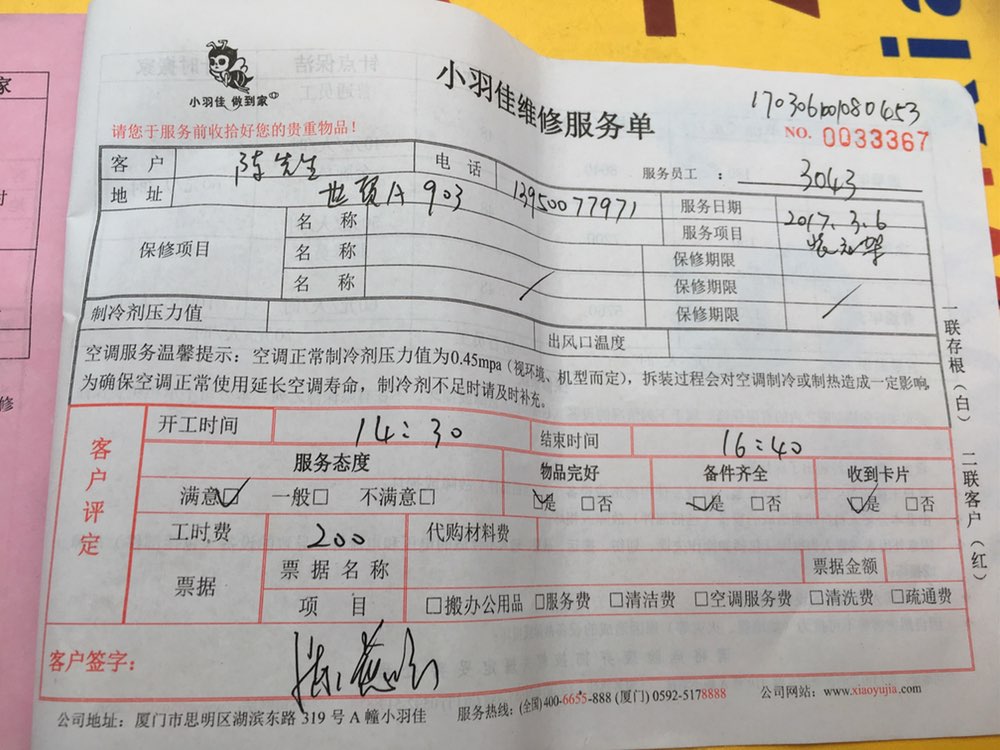 小羽佳 做到家
小羽佳维修服务单
1703061001080453
请您于服务前收拾好您的贵重物品！
NO. 0033367
客 户 陈先生 电 话 13950077971
服务员工 ： 3043
地 址 世贸A 903
服务日期 2017.3.6
保修项目
名 称
名 称
名 称
服务项目
保修期限
保修期限
保修期限
制冷剂压力值
出风口温度
空调服务温馨提示：空调正常制冷剂压力值为0.45mpa（视环境、机型而定），拆装过程会对空调制冷或制热造成一定影响,
为确保空调正常使用延长空调寿命，制冷剂不足时请及时补充。
一联存根（白） 二联客户（红）
客户评定
开工时间 14：30 结束时间 16：40
服务态度 物品完好 备件齐全 收到卡片
满意□ 一般□ 不满意□ □是 □否 □是 □否 □是 □否
工时费 200 代购材料费
票据 票据名称 票据金额
项 目 □搬办公用品 □服务费 □清洁费 □空调服务费 □清洗费 □疏通费
客户签字：
公司地址：厦门市思明区湖滨东路 319 号 A 幢小羽佳 服务热线：(全国)400-6655-888 (厦门) 0592-5178888 公司网站：www.xiaoyujia.com